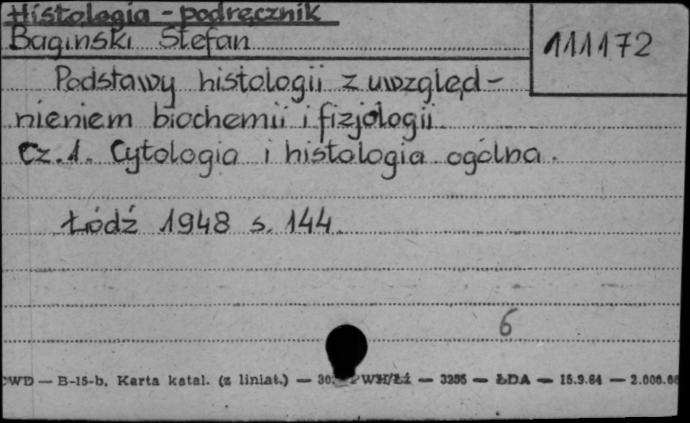 Histologia - podręcznik
Bagiński Stefan
111172
Podstawy histologii z uwzględ-
nieniem biochemii i fizjologii.
Cz.1. Cytologia i histologia ogólna.
Łódź 1948 s. 144.
6
WD — B-15-b. Karta katal. (z liniat.) — WH/Łź — 3255 — ŁDA — 15.9.64 —